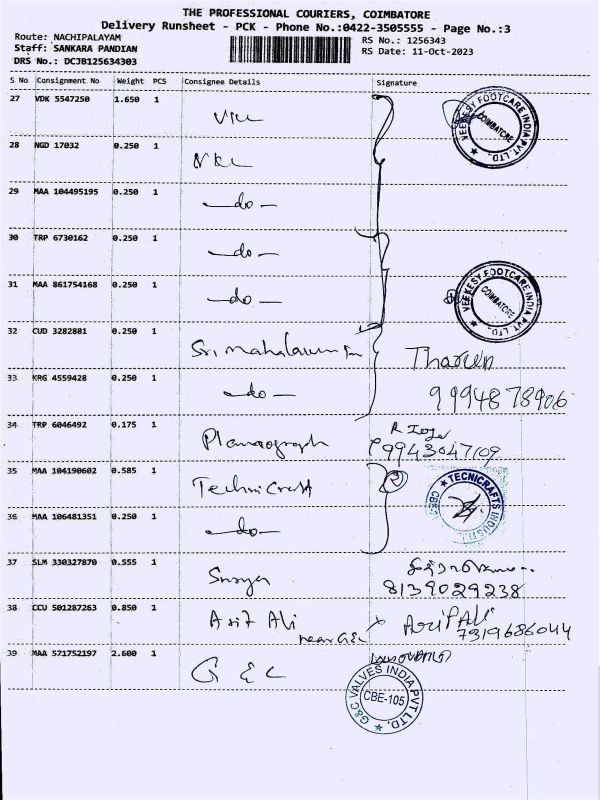 THE PROFESSIONAL COURIERS, COIMBATORE
Delivery Runsheet - PCK - Phone No.:0422-3505555 - Page No.:3
Route: NACHIPALAYAM
RS No.: 1256343
Staff: SANKARA PANDIAN
RS Date: 11-Oct-2023
DRS No.: DCJB125634303
S No Consignment No Weight PCS Consignee Details Signature
27 VDK 5547250 1.650 1
VEEKESY FOOTCARE INDIA PVT. LTD. COIMBATORE
28 NGD 17032 0.250 1 VKC
29 MAA 104495195 0.250 1 -do-
30 TRP 6730162 0.250 1 -do-
31 MAA 861754168 0.250 1 -do-
VEEKESY FOOTCARE INDIA PVT. LTD. COIMBATORE
32 CUD 3282881 0.250 1 Sri
33 KRG 4559428 0.250 1 -do- 9994878906
34 TRP 6046492 0.175 1 9943047109
35 MAA 104190602 0.585 1 Technicraft
TECNICRAFTS
36 MAA 106481351 0.250 1 -do-
37 SLM 330327870 0.555 1 Surya
8139029238
38 CCU 501287263 0.850 1 Arif Ali
near GEC
7319686044
39 MAA 571752197 2.600 1 G E C
G&C VALVES INDIA PVT LTD. CBE-105